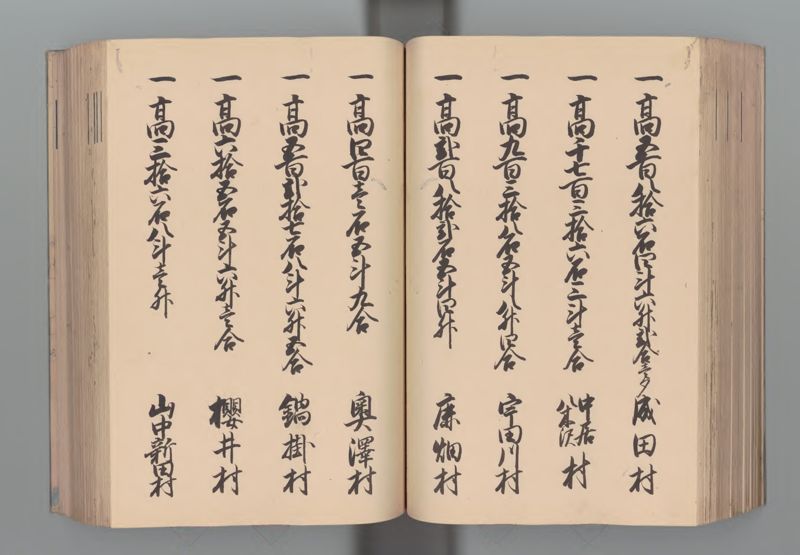 一高五百八拾六石四斗六升弐合壱夕 成田村
一高千七百三拾六石三斗壱合 中居 八朱沢 村
一高九百三拾八石五斗八升四合 宇田川村
一高弐百八拾弐石五斗四升 廉畑村
一高四百壱石五斗九合 奥澤村
一高五百弐拾七石八斗六升五合 鍋掛村
一高六拾五石五斗六升壱合 櫻井村
一高三拾六石八斗壱升 山中新田村